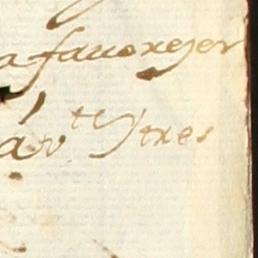 a favorezer
á v^te y tres